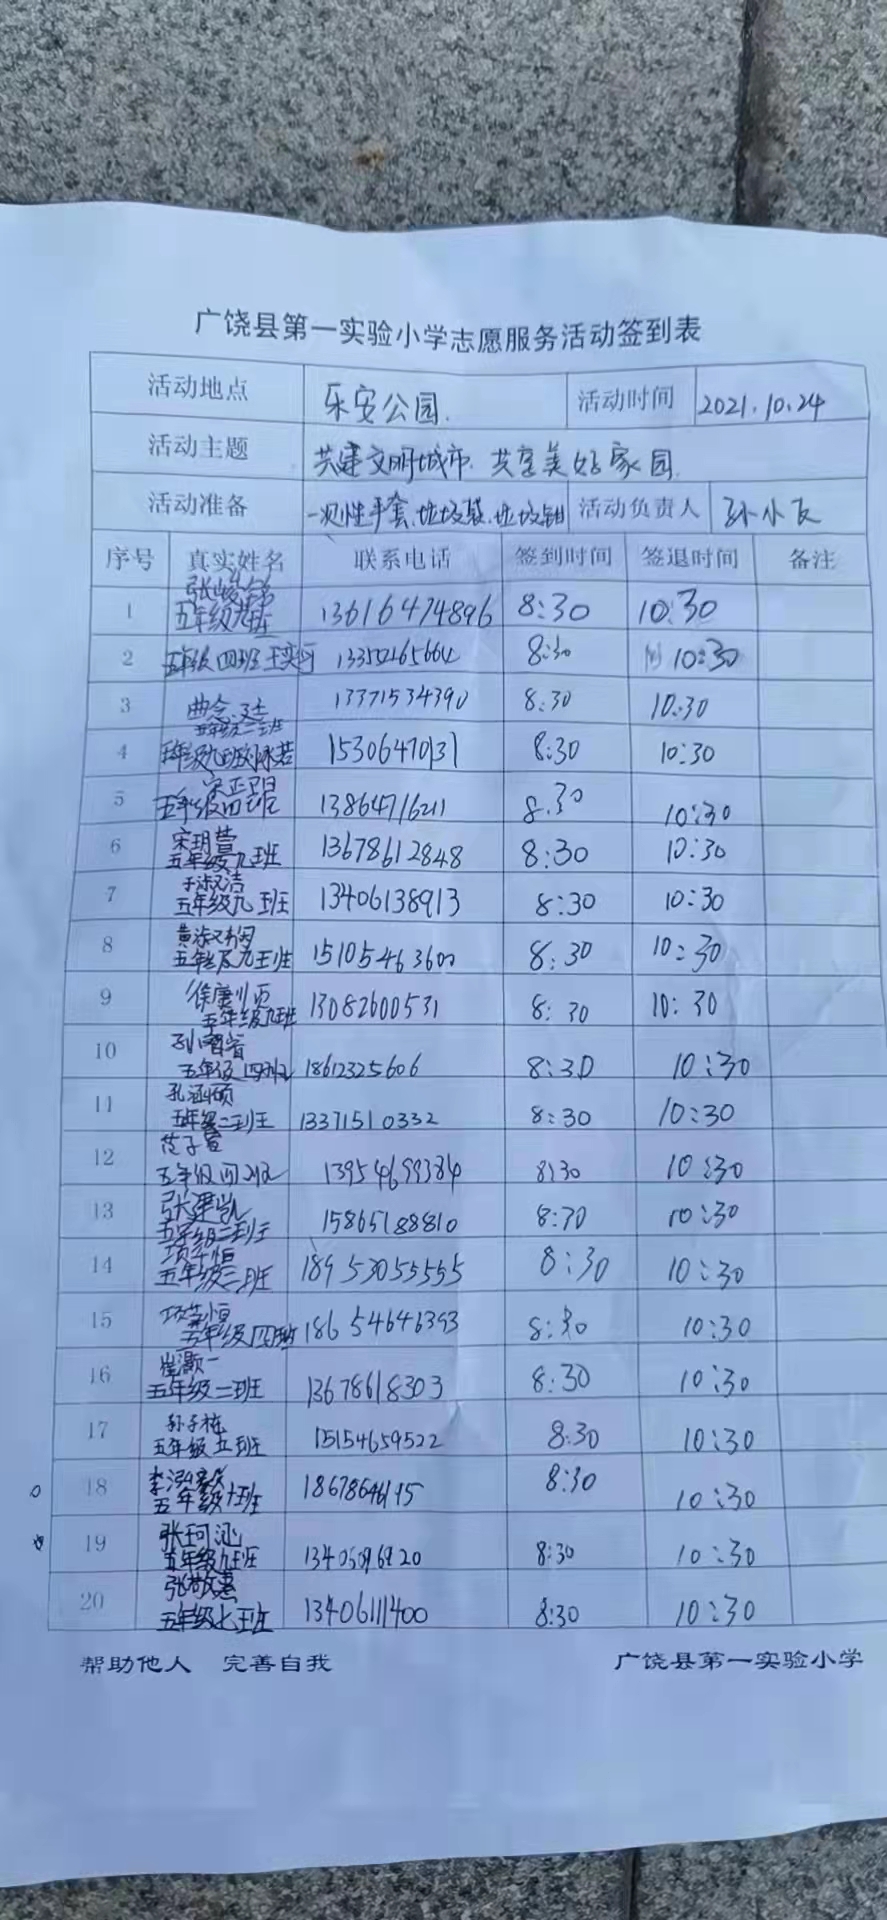 广饶县第一实验小学志愿服务活动签到表
活动地点 乐安公园. 活动时间 2021.10.24
活动主题 共建文明城市 共享美好家园
活动准备 一次性手套、垃圾袋、垃圾钳 活动负责人 孙小友
序号 真实姓名 联系电话 签到时间 签退时间 备注
1 五年级 13616474896 8:30 10:30
2 五年级四班 8:30 10:30
3 五年级二班 13371534390 8:30 10:30
4 五年级九班 15306470131 8:30 10:30
5 五年级四班 13864716211 8:30 10:30
宋玥萱
6 五年级九班 13678612848 8:30 10:30
于淑洁
7 五年级九班 13406138913 8:30 10:30
8 五年级九班 15105463600 8:30 10:30
9 五年级九班 13082600531 8:30 10:30
10 五年级四班 18612325606 8:30 10:30
孔涵硕
11 五年级二班 13371510332 8:30 10:30
范子萱
12 五年级四班 13954699384 8:30 10:30
张建凯
13 五年级二班 15865188810 8:30 10:30
14 五年级三班 18953055555 8:30 10:30
15 五年级四班 18654646393 8:30 10:30
崔灏一
16 五年级二班 13678618303 8:30 10:30
孙子栋
17 五年级五班 15154659522 8:30 10:30
18 五年级十班 8:30 10:30
张珂涵
19 五年级九班 8:30 10:30
张敬惠
20 五年级七班 13406111400 8:30 10:30
帮助他人 完善自我 广饶县第一实验小学